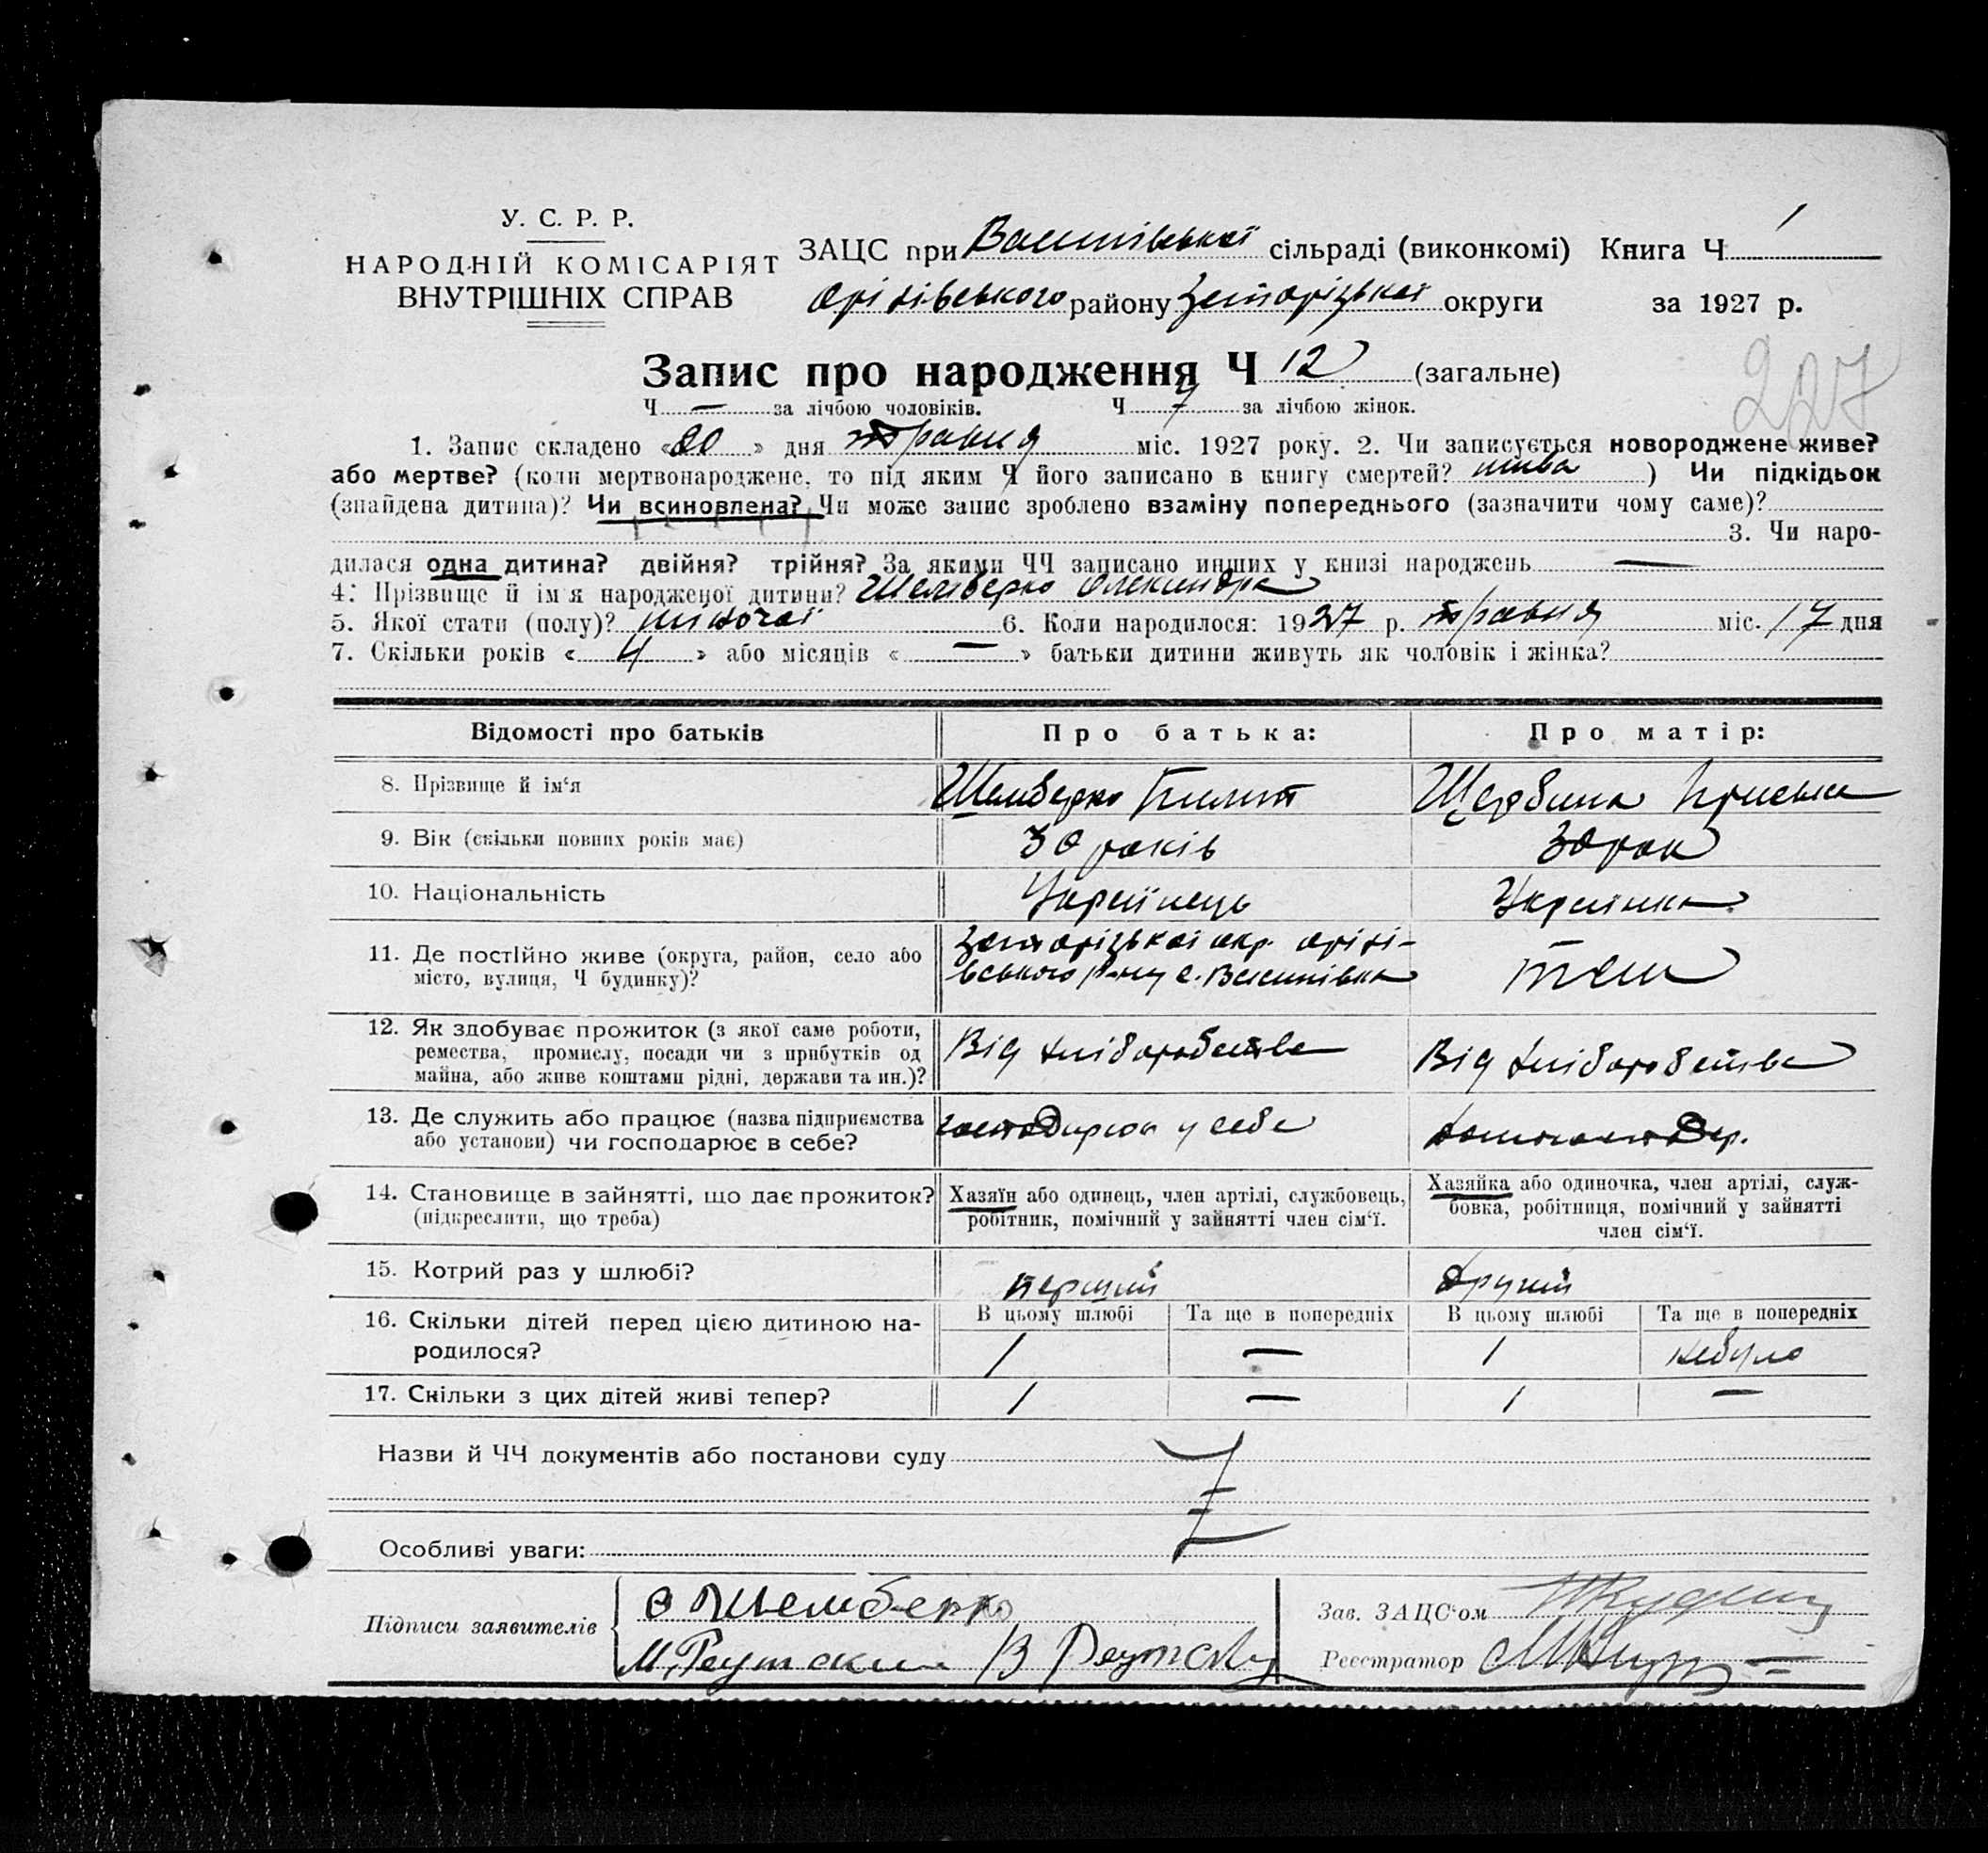 У. С. Р. Р.
НАРОДНІЙ КОМІСАРІЯТ
ВНУТРІШНІХ СПРАВ
ЗАЦС при Василівській сільраді (виконкомі) Книга Ч 1
Оріхівського району Запорізької округи за 1927 р.
227
Запис про народження Ч 12 (загальне)
Ч — за лічбою чоловіків. Ч 7 за лічбою жінок.
1. Запис складено «20» дня травня міс. 1927 року. 2. Чи записується новороджене живе?
або мертве? (коли мертвонароджене, то під яким Ч його записано в книгу смертей? жива ) Чи підкідьок
(знайдена дитина)? Чи всиновлена? Чи може запис зроблено взаміну попереднього (зазначити чому саме)?
3. Чи наро-
дилася одна дитина? двійня? трійня? За якими ЧЧ записано инших у книзі народжень —
4. Прізвище й ім'я народженої дитини? Шемберко Олександра
5. Якої стати (полу)? жіночої 6. Коли народилося: 1927 р. травня міс. 17 дня
7. Скільки років « 4 » або місяців « — » батьки дитини живуть як чоловік і жінка?
Відомості про батьків Про батька: Про матір:
8. Прізвище й ім'я Шемберко Пилип Щербина Приська
9. Вік (скільки повних років має) 30 років 30 рок
10. Національність Українець Українка
11. Де постійно живе (округа, район, село або Запорізької окр. Оріхі- там
місто, вулиця, Ч будинку)? вського р-ну с. Василівка
12. Як здобуває прожиток (з якої саме роботи, Від хліборобства Від хліборобства
ремества, промислу, посади чи з прибутків од
майна, або живе коштами рідні, держави та ин.)?
13. Де служить або працює (назва підприємства господарює у себе
або установи) чи господарює в себе?
14. Становище в зайнятті, що дає прожиток? Хазяїн або одинець, член артілі, службовець, Хазяйка або одиночка, член артілі, служ-
(підкреслити, що треба) робітник, помічний у зайнятті член сім'ї. бовка, робітниця, помічний у зайнятті
член сім'ї.
15. Котрий раз у шлюбі? перший другий
16. Скільки дітей перед цією дитиною на- В цьому шлюбі Та ще в попередніх В цьому шлюбі Та ще в попередніх
родилося? 1 — 1 небуло
17. Скільки з цих дітей живі тепер? 1 — 1 —
Назви й ЧЧ документів або постанови суду
Особливі уваги:
Підписи заявителів Шемберко Зав. ЗАЦС'ом
М. Реутский В Реутский Реєстратор